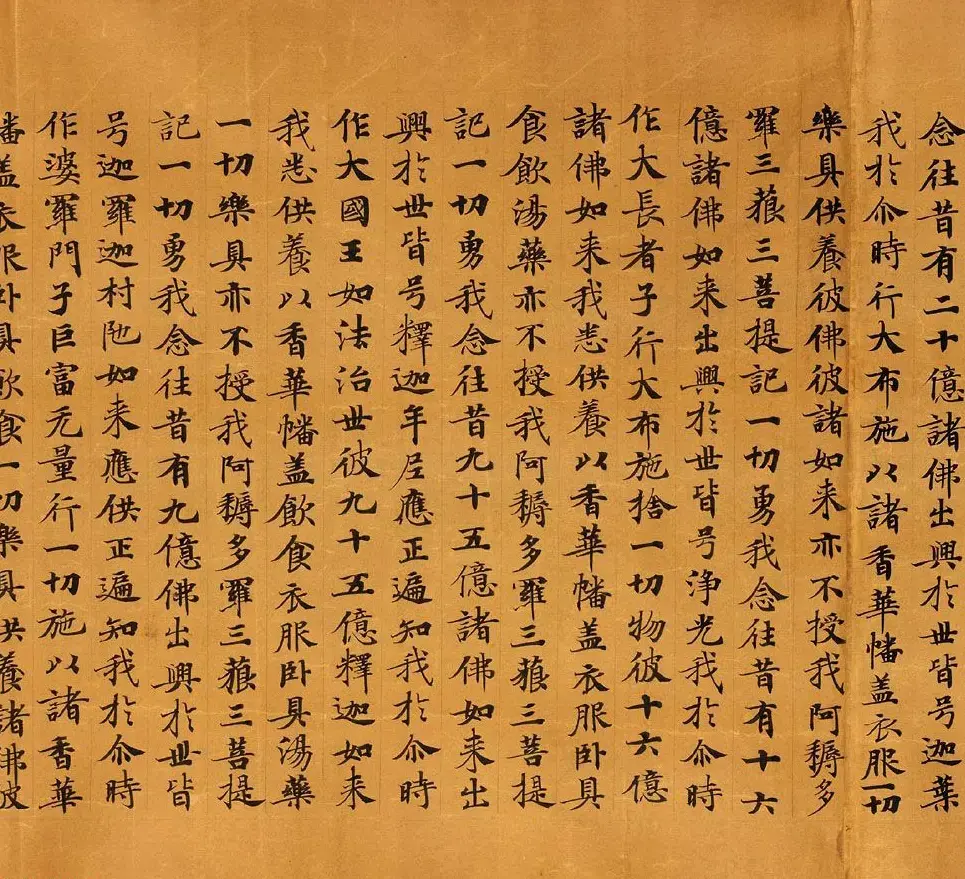 念往昔有二十億諸佛出興於世皆号迦葉
我於尒時行大布施以諸香華幡盖衣服一切
樂具供養彼佛彼諸如来亦不授我阿耨多
羅三藐三菩提記一切勇我念往昔有十六
億諸佛如来出興於世皆号淨光我於尒時
作大長者子行大布施捨一切物彼十六億
諸佛如来我悉供養以香華幡盖衣服卧具
飲食湯藥亦不授我阿耨多羅三藐三菩提
記一切勇我念往昔九十五億諸佛如来出
興於世皆号釋迦牟尼應正遍知我於尒時
作大國王如法治世彼九十五億釋迦如来
我悉供養以香華幡盖飲食衣服卧具湯藥
一切樂具亦不授我阿耨多羅三藐三菩提
記一切勇我念往昔有九億佛出興於世皆
号迦羅迦村陁如来應供正遍知我於尒時
作婆羅門子巨富无量行一切施以諸香華
幡盖衣服卧具飲食一切樂具供養諸佛彼